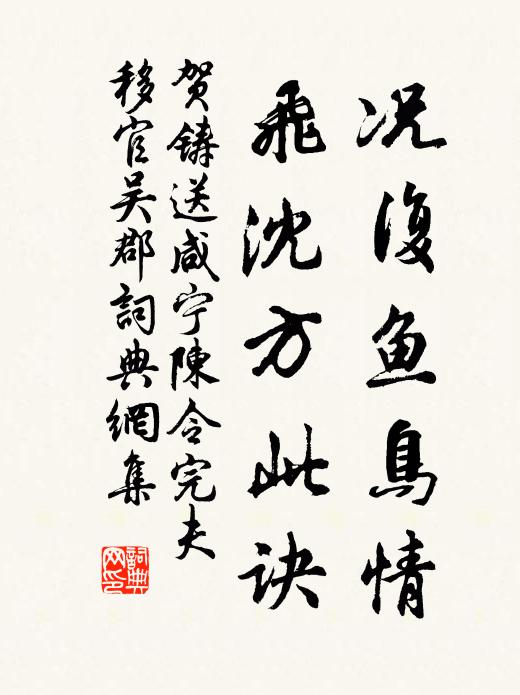 况復鱼鳥情
飛沈方此诀
贺鑄送咸宁陳令完夫
移官吴郡詞典網集
詞典网印